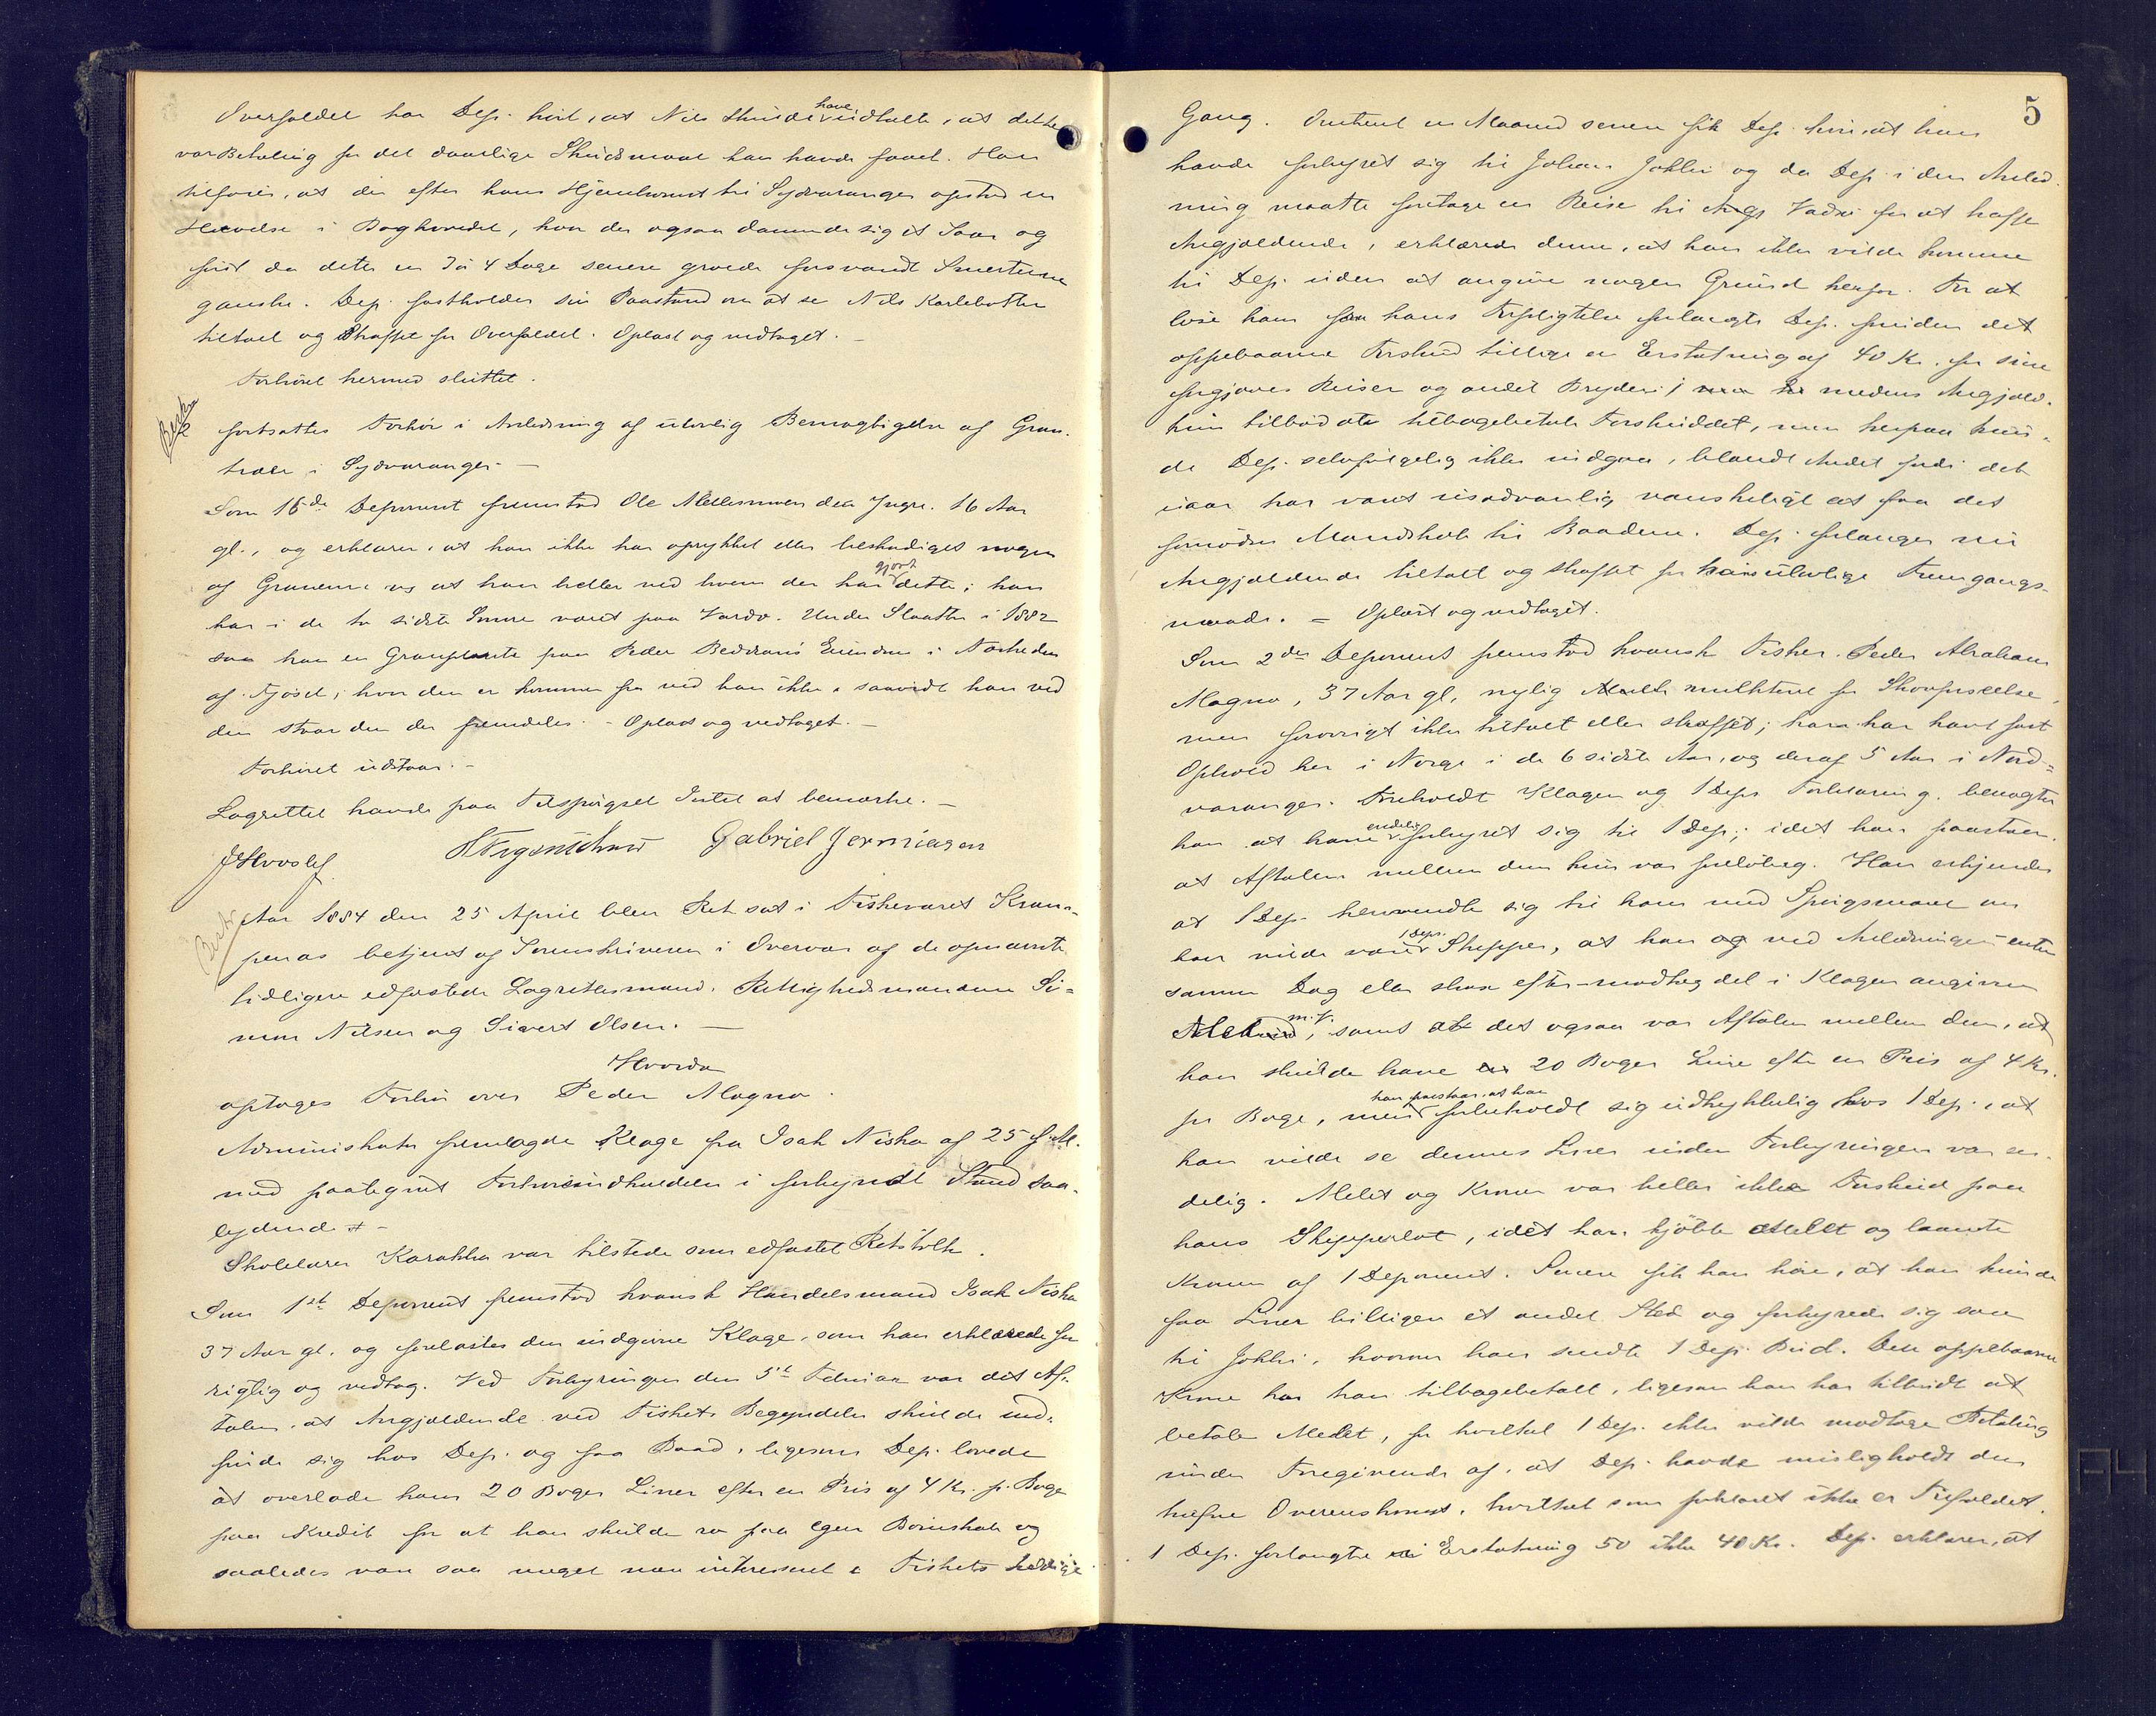 Overfaldet har Dep. hört, at Nils skulde have udtalt, at dette
var Betaling for det daarlige Skudsmaal han havde faaet. Han
tilföier, at der efter hans Hjemkomst til Sydvaranger opstod en
Hævelse i Baghovedet, hvor der ogsaa dannede sig et Saar og
först da dette en 3 à 4 Dage senere groede forsvandt Smerterne
ganske. Dep. fastholder sin Paastand om at se Nils Karlebotten
tiltalt og straffet for Overfaldet. Oplæst og vedtaget. —
Forhöret hermed sluttet.
Beskr.
fortsattes Forhör i Anledning af ulovlig Bemægtigelse af Gran-
trær i Sydvaranger. —
Som 16de Deponent fremstod Ole Mellesmoen den Yngre. 16 Aar
gl., og erklærer, at han ikke har oprykket eller beskadiget nogen
af Granerne og at han heller ved hvem der har gjort dette; han
har i de to sidste Somre været paa Vardö. Under Slaatten i 1882
saa han en Granplante paa Peder Beddaris Eiendom i Nærheden
af Fjöset; hvor den er kommen fra ved han ikke, saavidt han ved
den staar den der fremdeles. – Oplæst og vedtaget. —
Forhöret udstaar. –
Lagrettet havde paa Tilspörgsel Intet at bemærke. —
Gabriel Jermiasen
Beskr.
Aar 1884 den 25 April blev Ret sat i Fiskeværet Kram-
penæs betjent af Sorenskriveren i Overvær af de opnævnte
tidligere edfæstede Lagrettesmænd, Rettighedsmændene Si-
mon Nilsen og Sivert Olsen. —
Hvorda
optoges Forhör over Peder Magno.
Administrator fremlagde Klage fra Isak Niska af 25 f. M.
med paategnet Forhörsindkaldelse i forkyndt Stand saa-
lydende # –
Skolelærer Karakka var tilstede som edfæstet Retstolk.
Som 1ste Deponent fremstod kvænsk Handelsmand Isak Niska
37 Aar gl. og forelæstes den indgivne Klage, som han erklærede for
rigtig og vedtog. Ved Forhyringen den 5te Februar var det Af-
talen, at Angjældende ved Fiskets Begyndelse skulde ind-
finde sig hos Dep. og faa Baad, ligesom Dep. lovede
at overlade ham 20 Böger Liner efter en Pris af 4 Kr. p. Böge
paa Kredit for at han skulde ro paa egen Börnskab og
saaledes være saa meget mere interesseret i Fiskets heldige
5
Gang. Omtrent en Maaned senere fik Dep. höre, at han
havde forhyret sig til Johan Jokki og da Dep. i den Anled-
ning maatte foretage en Reise til Vadsö for at træffe
Angjældende, erklærede denne, at han ikke vilde komme
til Dep. uden at angive nogen Grund herfor. For at
löse ham fra hans Forpligtelse forlangte Dep. foruden det
oppebaarne Forskud tillige en Erstatning af 40 Kr. for sine
forgjæves Reiser og andet Bryderi, medens Angjæld.
kun tilböd at tilbagebetale Forskuddet, men herpaa kun-
de Dep. selvfölgelig ikke indgaa, blandt Andet fordi det
iaar har været usædvanlig vanskeligt at faa det
fornödne Mandskab til Baadene. Dep. forlanger nu
Angjældende tiltalt og straffet for hans ulovlige Fremgangs-
maade. – Oplæst og vedtaget.
Som 2den Deponent fremstod kvænsk Fisker Peder Abraham
Magno, 37 Aar gl., nylig mulkteret for Skovforseelse,
men forövrigt ikke tiltalt eller straffet; han har havt fast
Ophold her i Norge i de 6 sidste Aar, og deraf 5 Aar i Nord-
varanger. Foreholdt Klagen og 1 Deps Forklaring, benegter
han at have endelig forhyret sig til 1 Dep.; idet han paastaar,
at Aftalen mellem dem kun var forelöbig. Han erkjender
at 1 Dep. henvendte sig til ham med Spörgsmaal om
han vilde være 1 Deps. Skipper, at han og ved Anledningen enten
samme Dag eller strax efter modtog det i Klagen angivne
m.v., samt at det ogsaa var Aftalen mellem dem, at
han skulde have 20 Böger Line efter en Pris af 4 Kr.
pr Böge, men han paastaar, at han forbeholdt sig udtrykkelig hos 1 Dep., at
han vilde se dennes Liner inden Forhyringen var en-
delig. Melet og Kronen var heller ikke Forskud paa
hans Skipperlot, idet han kjöbte Melet og laante
Kronen af 1 Deponent. Senere fik han höre, at han kunde
faa Liner billigere et andet Sted og forhyrede sig saa
til Jokki, hvorom han sendte 1 Dep. Bud. Den oppebaarne
Krone har han tilbagebetalt, ligesom han har tilbudt at
betale Melet, for hvilket 1 Dep. ikke vilde modtage Betaling
under Foregivende af, at Dep. havde misligholdt den
trufne Overenskomst, hvilket som forklaret ikke er Tilfældet.
1 Dep. forlangte i Erstatning 50 ikke 40 Kr. Dep. erklærer, at